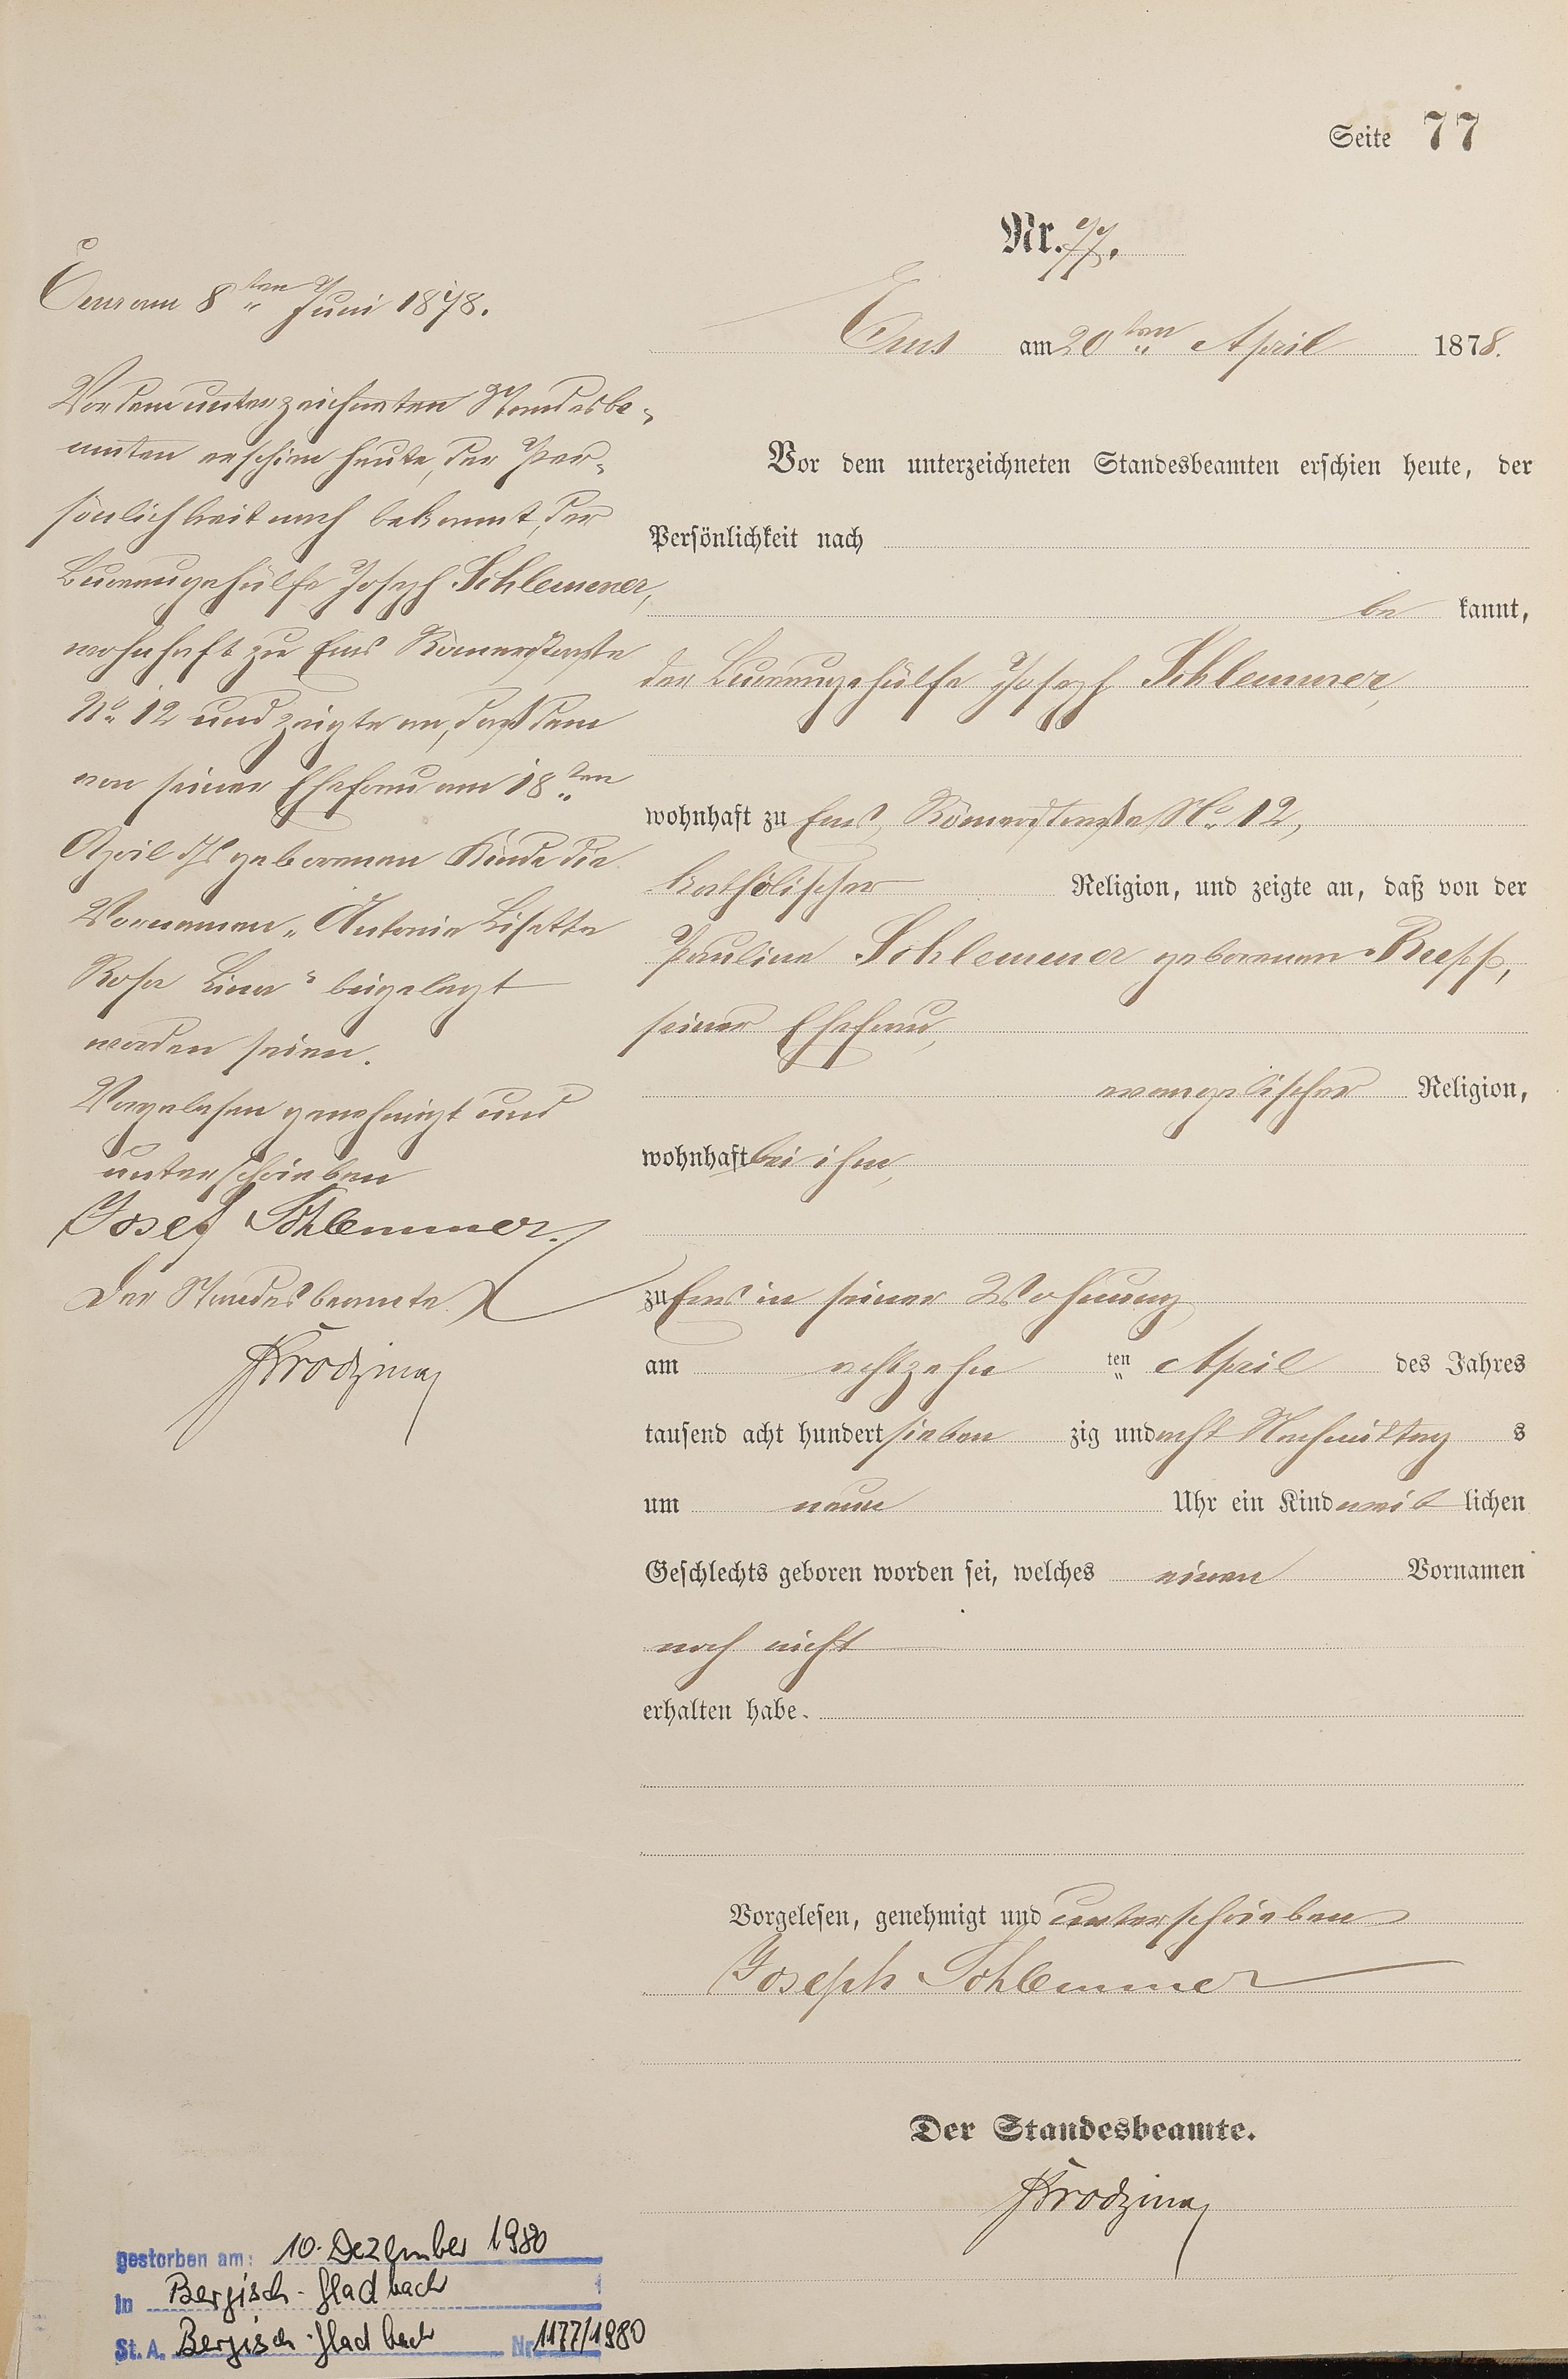 Seite 77
Nr. 77.
Ems am 20ten April 1878.
Vor dem unterzeichneten Standesbeamten erschien heute, der
Persönlichkeit nach
be kannt,
der Bureaugehülfe Joseph Schlemmer,
wohnhaft zu Ems, Römerstraße No 12,
katholischer Religion, und zeigte an, daß von der
Pauline Schlemmer geborenen
seiner Ehefrau,
evangelischer Religion,
wohnhaft bei ihm,
zu Ems in seiner Wohnung
am achtzehn ten April des Jahres
tausend acht hundert sieben zig und acht Nachmittag s
um neun Uhr ein Kind weib lichen
Geschlechts geboren worden sei, welches einen Vornamen
noch nicht
erhalten habe.
Vorgelesen, genehmigt und unterschrieben
Joseph Schlemmer
Der Standesbeamte.
Ems am 8ten Juni 1878.
Vor dem unterzeichneten Standesbe-
amten erschien heute, der Per-
sönlichkeit nach bekannt, der
Bureaugehülfe Joseph Schlemmer,
wohnhaft zu Ems Römerstraße
No 12 und zeigte an, daß dem
von seiner Ehefrau am 18ten
April djs geborenen Kinde die
Vornamen „Antonie Lisette
Rosa Lina" beigelegt
worden seien.
Vorgelesen genehmigt und
unterschrieben
Josef Schlemmer.
Der Standesbeamte
gestorben am: 10. Dezember 1980
in Bergisch-Gladbach
St. A. Bergisch-Gladbach Nr 1177/1980